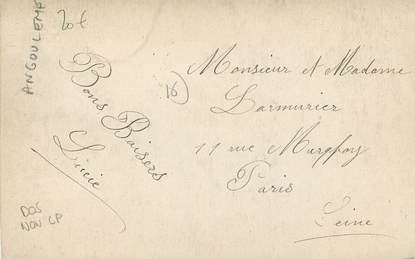 ANGOULEME
20€
16
Bons Baisers
Lucie
Monsieur et Madame
Larmurier
11 rue Marqfoy
Paris
Seine
DOS
NON CP